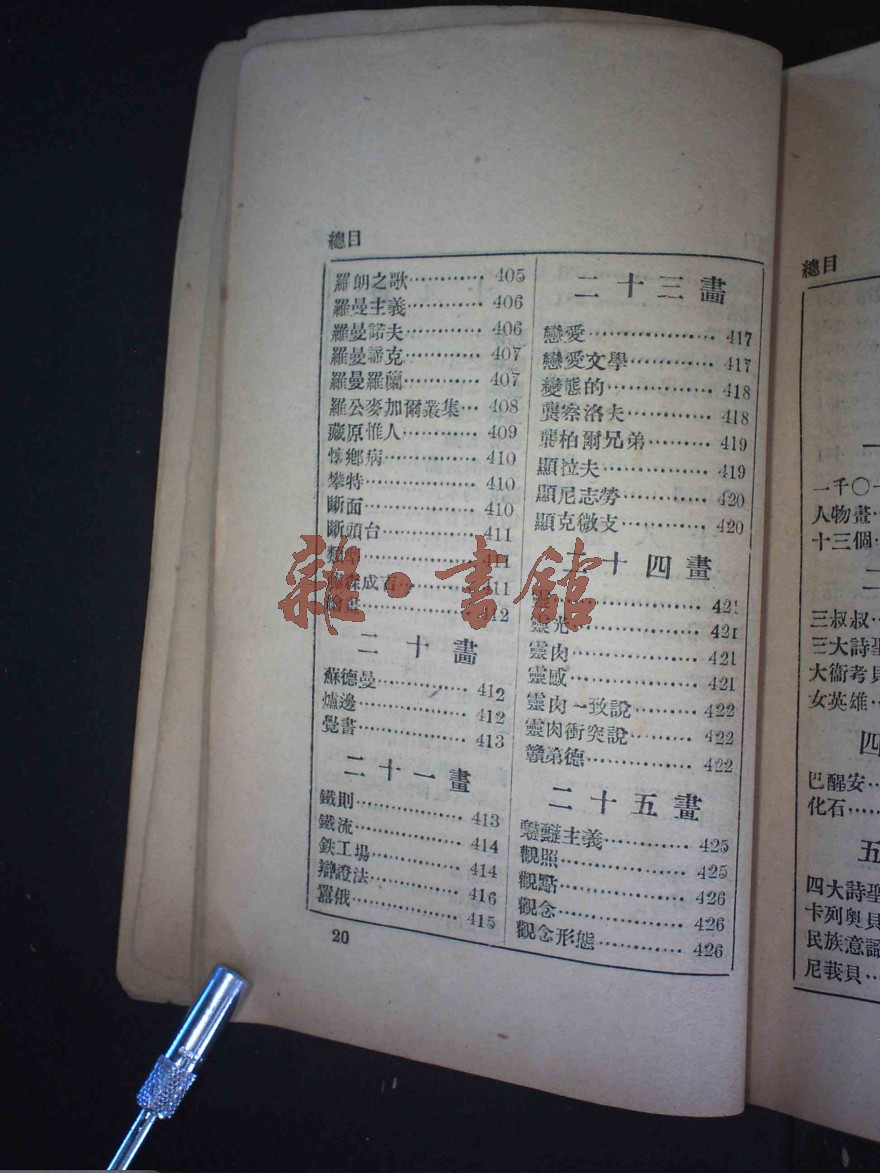 總目
羅朗之歌………… 405
羅曼主義………… 406
羅曼諾夫………… 406
羅曼諦克………… 407
羅曼羅蘭………… 407
羅公麥加爾叢集… 408
藏原惟人………… 409
懷鄉病………… 410
攀特………… 410
斷面………… 410
斷頭台………… 411
類型………… 411
411
繪畫………… 412
二十畫
蘇德曼………… 412
爐邊………… 412
覺書………… 413
二十一畫
鐵則………… 413
鐵流………… 414
鉄工場………… 414
辯證法………… 416
囂俄………… 415
20
二十三畫
戀愛………… 417
戀愛文學………… 417
變態的………… 418
龔察洛夫………… 418
龔柏爾兄弟……… 419
顯拉夫………… 419
顯尼志勞………… 420
顯克微支………… 420
二十四畫
421
靈光………… 421
靈肉………… 421
靈感………… 421
靈肉一致說……… 422
靈肉衝突說……… 422
贛第德………… 422
二十五畫
主義………… 425
觀照………… 425
觀點………… 426
觀念………… 426
觀念形態………… 426
雜·書館
總目
一千〇
人物畫
十三個
三叔叔
三大詩聖
大衞考貝
女英雄
四
巴醒安
化石
五
四大詩聖
卡列奧貝
民族意識
尼莪貝